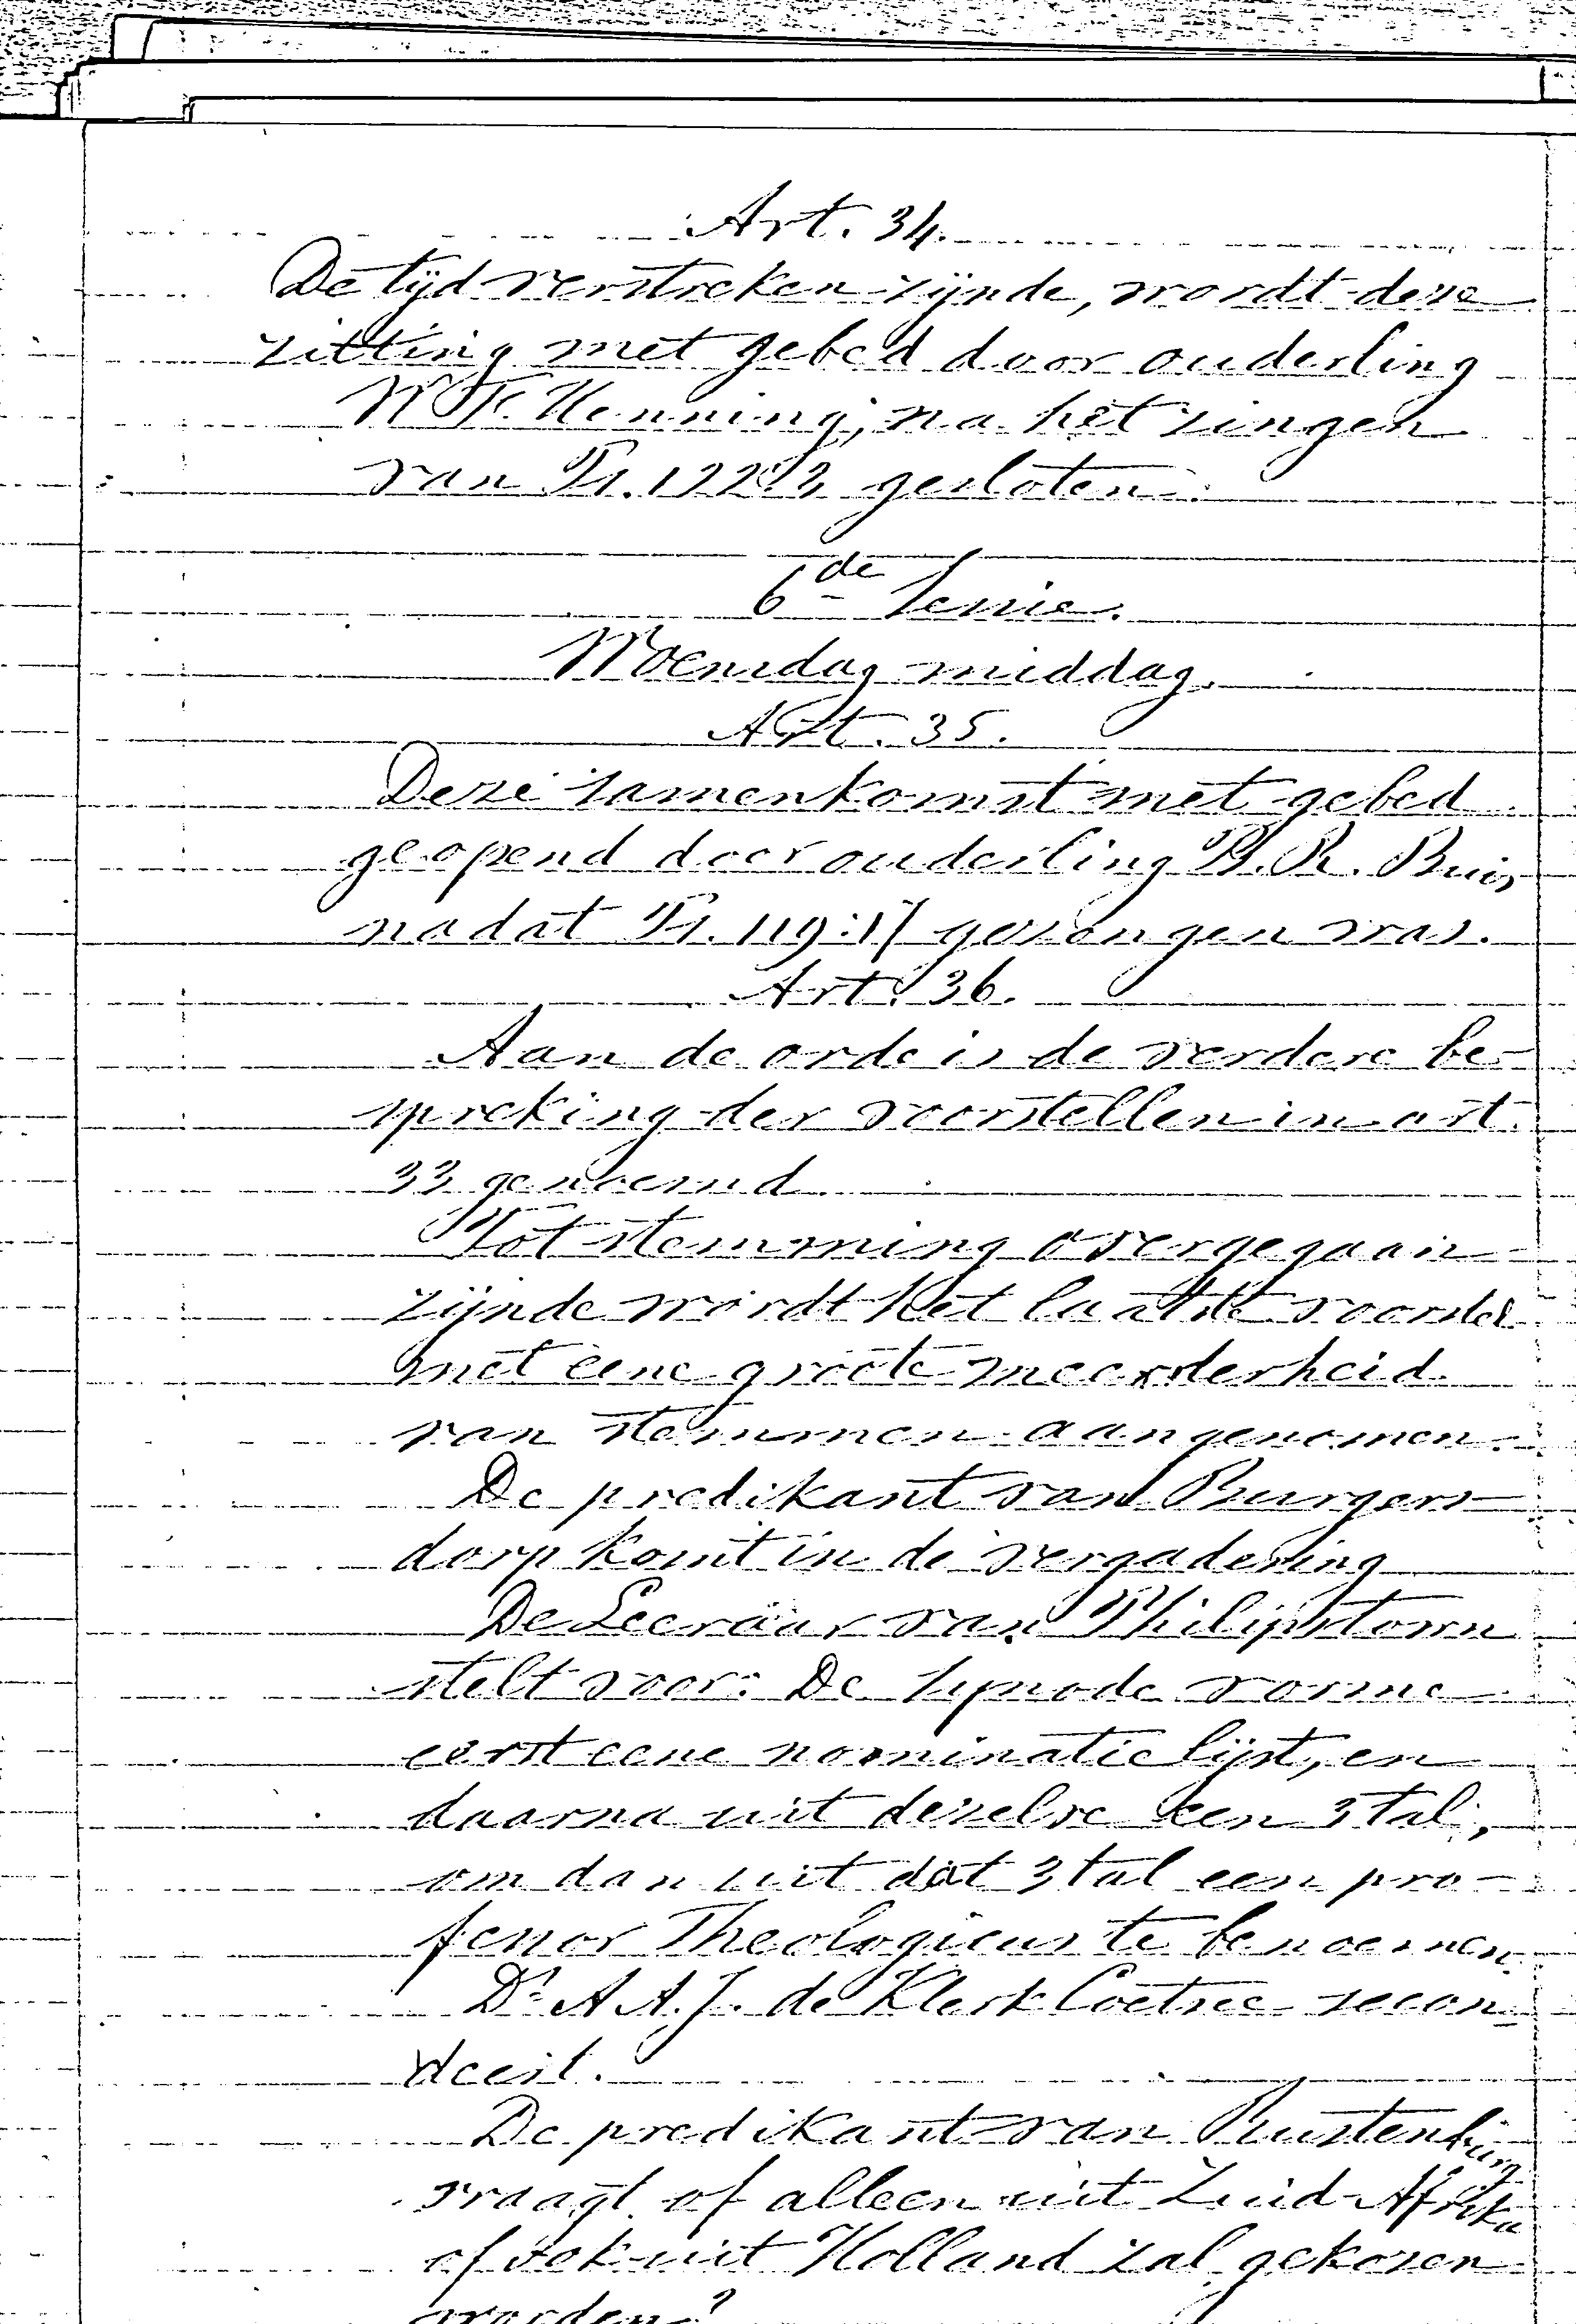 Art. 34.
De tijd verstreken zijnde, wordt deze
zitting met gebed door ouderling
W. F. Henning, na het zingen
van Ps. 122:3 gesloten.
6de Sessie.
Woensdag middag.
Art. 35.
Deze samenkomst met gebed
geopend door ouderling P. R. Buis,
nadat Ps. 119:17 gezongen was.
Art. 36.
Aan de orde is de verdere be-
spreking der voorstellen in art.
33 genoemd.
Tot stemming overgegaan
zijnde wordt het laatste voorstel
met eene groote meerderheid
van stemmen aangenomen.
De predikant van Burgers-
dorp komt in de vergadering
De Leeraar van Philipstown
stelt voor: De Synode vorme
eerst eene nominatie lijst, en
daarna uit dezelve een 3 tal,
om dan uit dat 3 tal een pro-
fessor Theologicus te benoemen.
Ds. A. A. J. de Klerk Coetsee secon-
deert.
De predikant van Rustenburg
vraagt of alleen uit Zuid-Afrika
of ook uit Holland zal gekozen
worden?